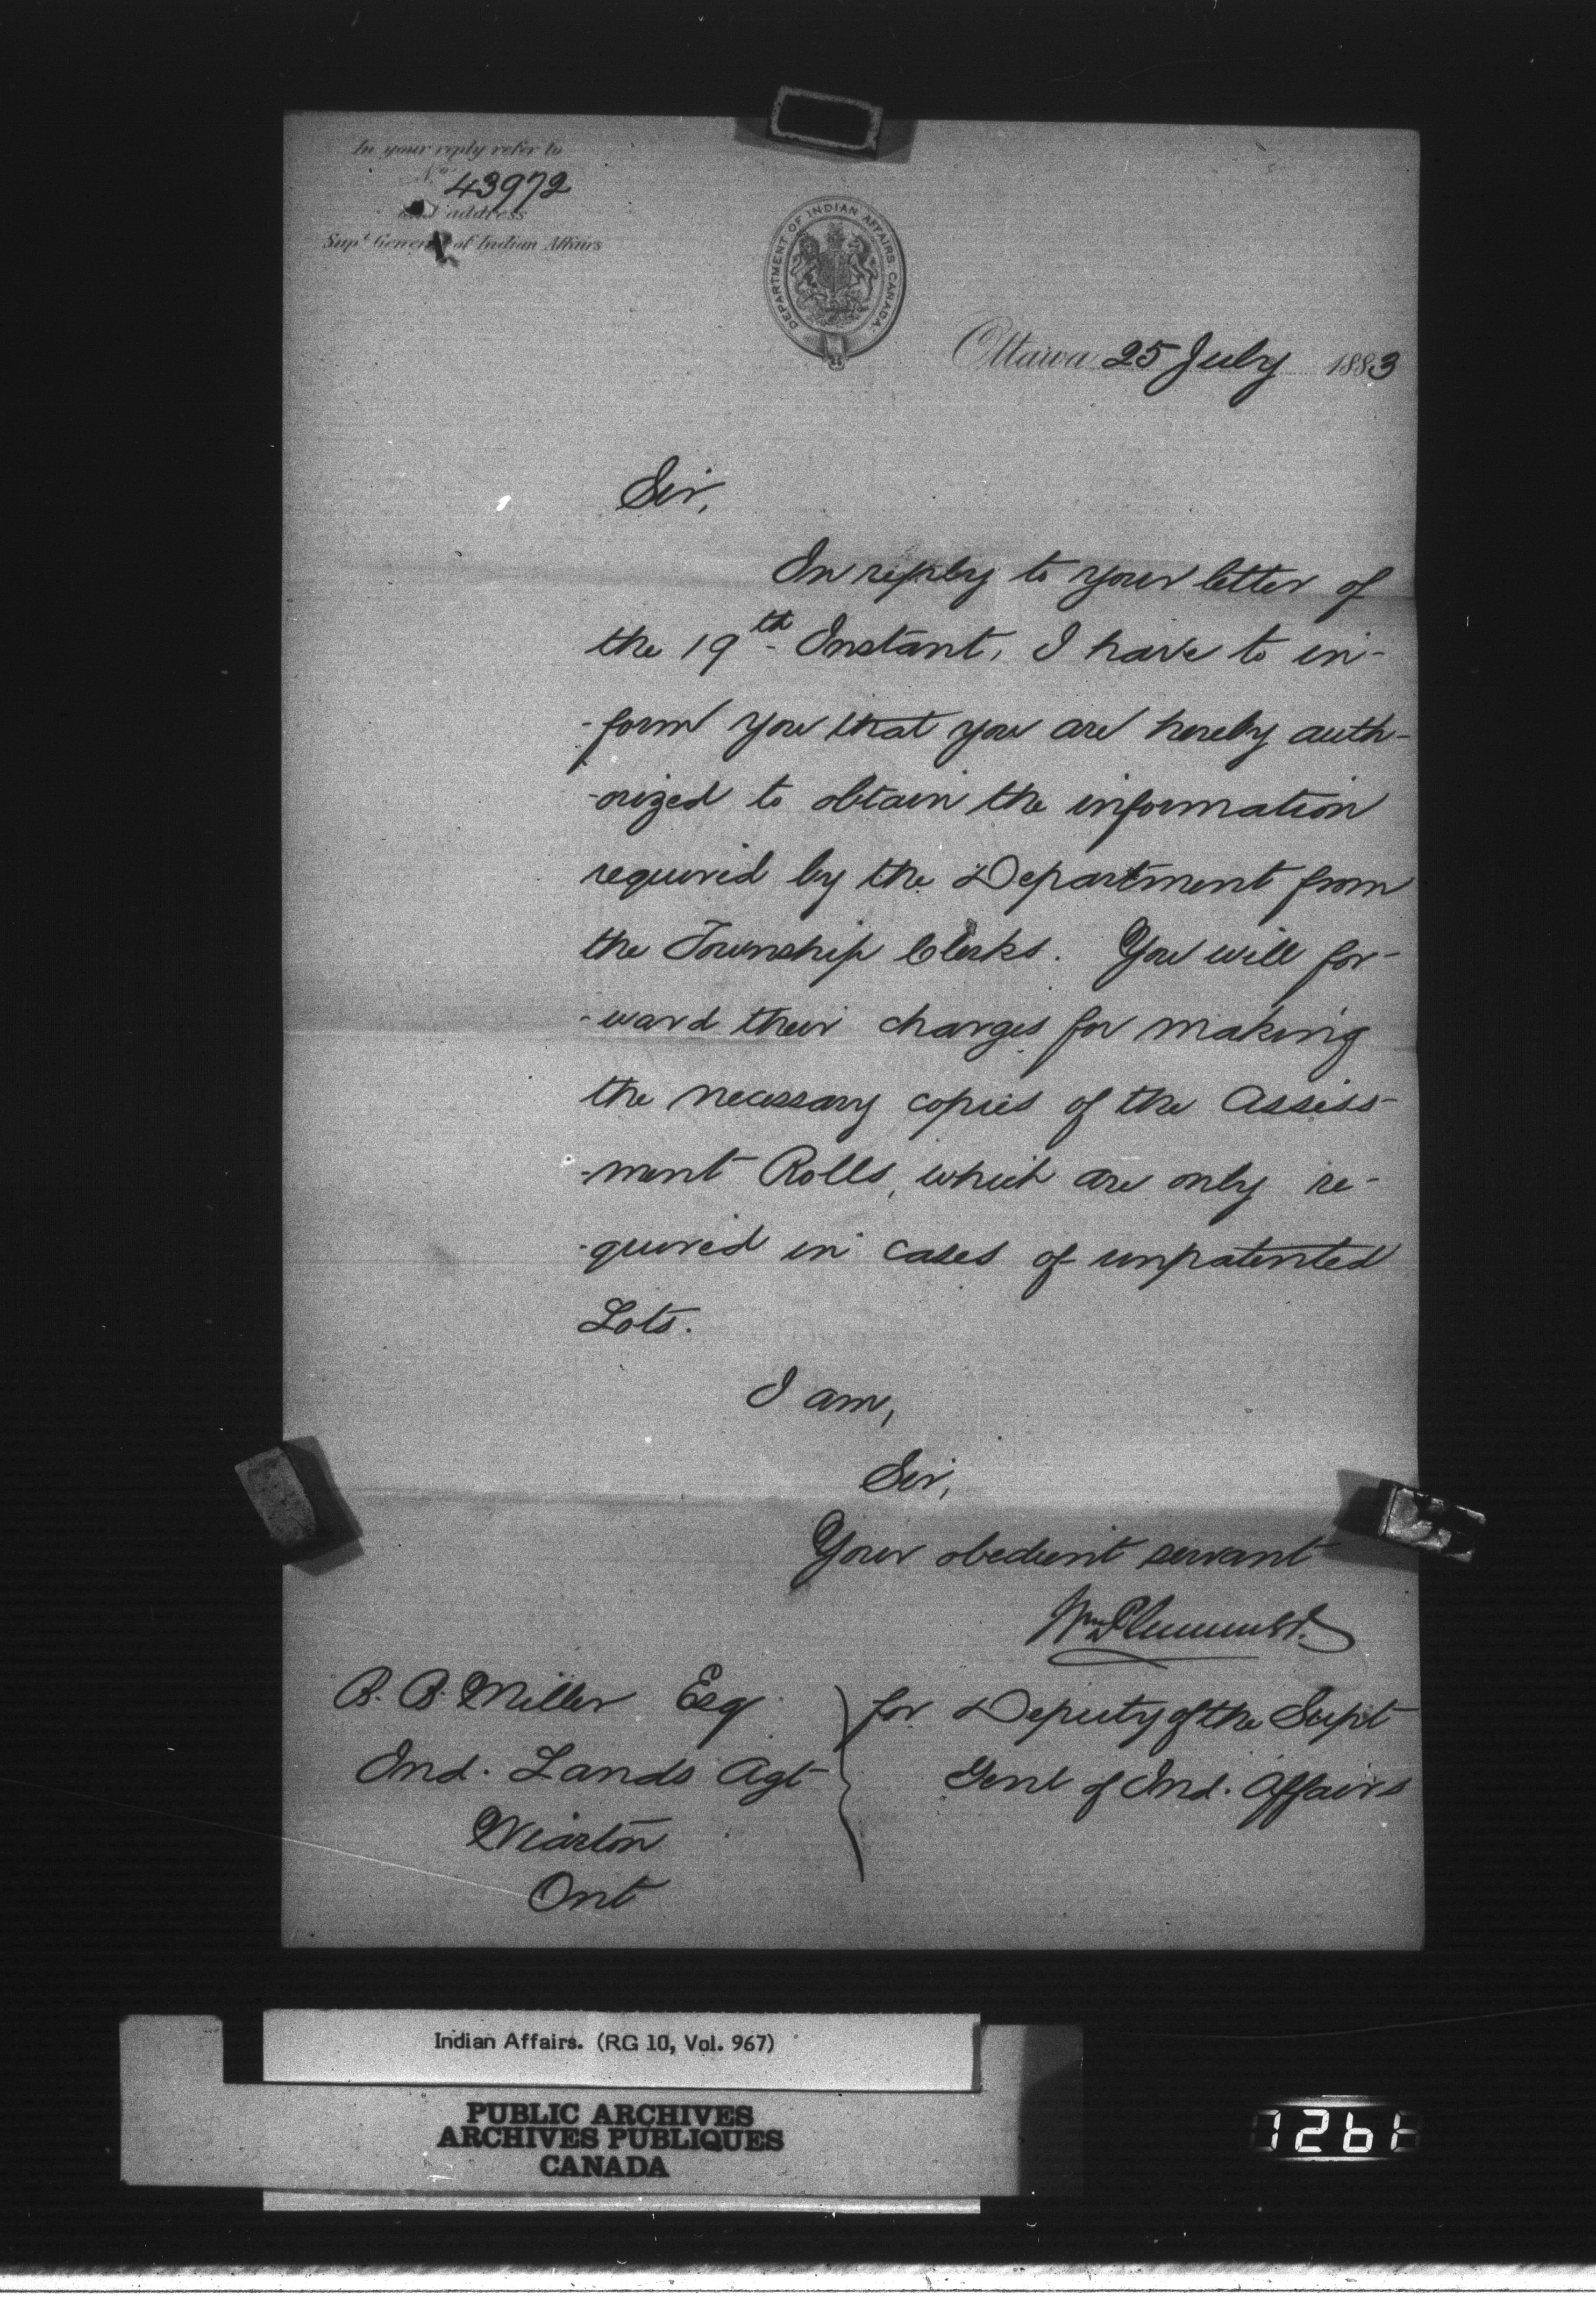 In your reply refer to
No 43972
and address
Supt General of Indian Affairs
DEPARTMENT OF INDIAN AFFAIRS. CANADA.
Ottawa 25 July 1883
Sir,
In reply to your letter of
the 19th Instant, I have to in-
-form you that you are hereby auth-
-orized to obtain the information
required by the Department from
the Township Clerks. You will for-
-ward their charges for making
the necessary copies of the Assess-
-ment Rolls, which are only re-
-quired in cases of unpatented
Lots.
I am,
Sir,
Your obedient servant
Wm Plummer
for Deputy of the Supt
Genl of Ind. Affairs
B. B. Miller Esq
Ind. Lands Agt
Wiarton
Ont
Indian Affairs. (RG 10, Vol. 967)
PUBLIC ARCHIVES
ARCHIVES PUBLIQUES
CANADA